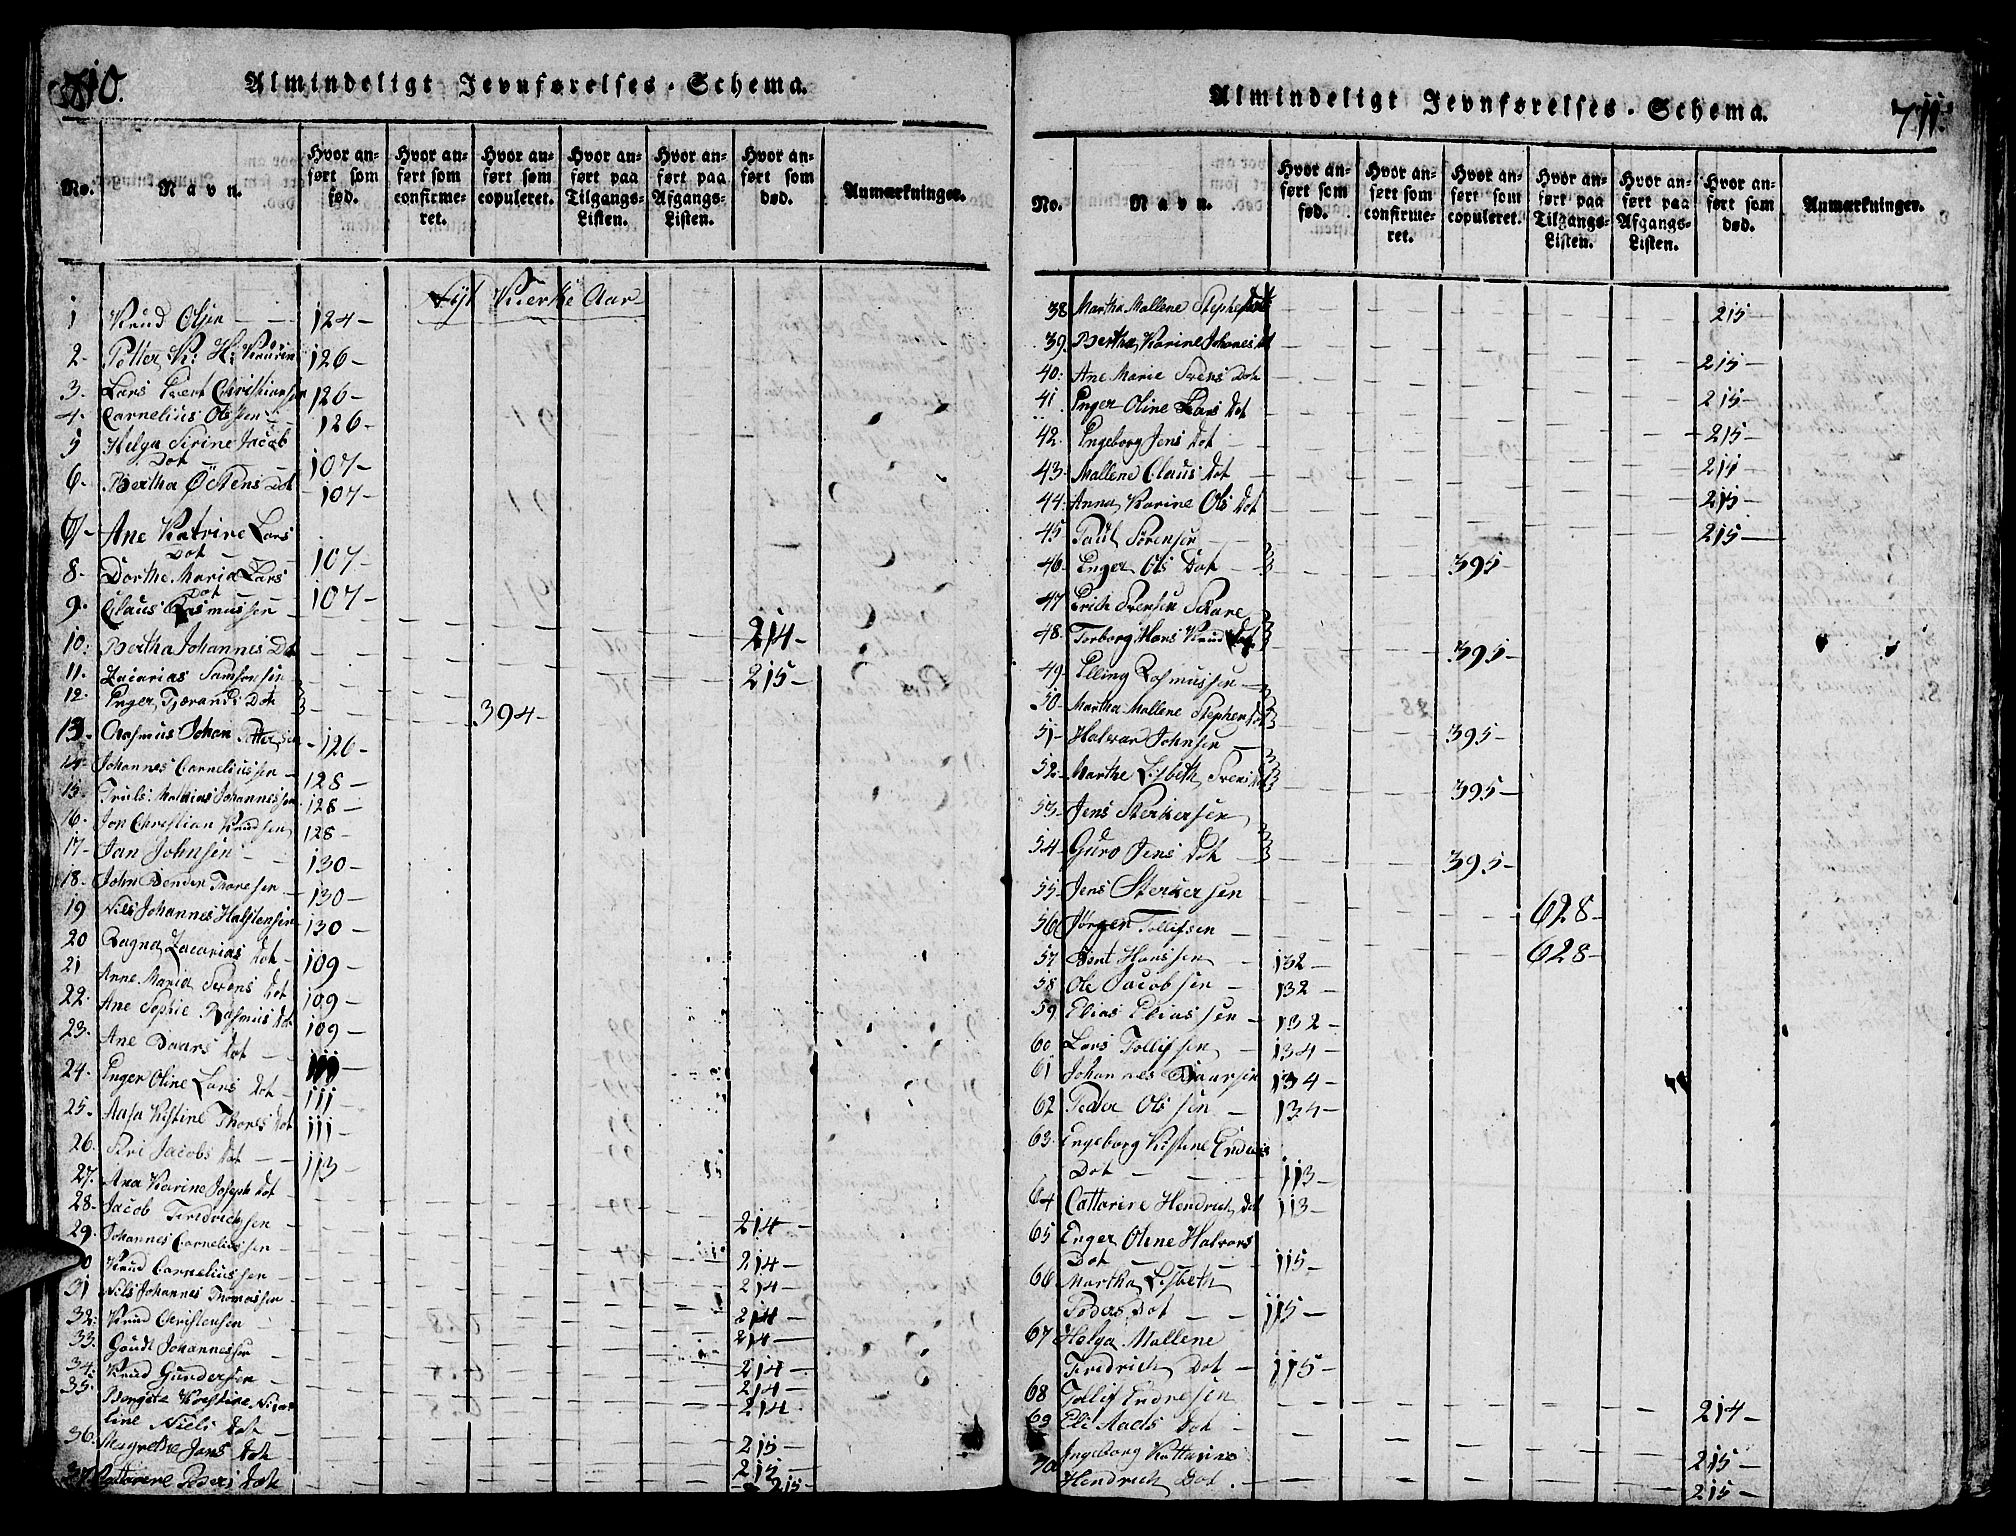 710.
Almindeligt Jevnførelses-Schema.
No. Navn. Hvor anført som fød. Hvor anført som confirmeret. Hvor anført som copuleret. Hvor anført paa Tilgangs-Listen. Hvor anført paa Afgangs-Listen. Hvor anført som død. Anmærkninger.
Kierke Aar
1 Knud Olsen 124
2 Petter K: H: 126
3 Lars Evert Christiansen 126
4 Carnelius Olssen 126
5 Helga Serine Jacob
Dot 107
6 Bertha Östens Dot 107
7 Ane Katrine Lars
Dot 107
8 Dorthe Maria Lars
Dot 107
9 Claus Rasmussen 214
10 Bertha Johannes Dot 215
11 Zacarias Samsonsen
12 Enger Tjerands Dot 394
13 Rasmus Johan Pettersen 126
14 Johannes Carneliussen 128
15 Truls Mathias Johannessen 128
16 Jon Christian Knudsen 128
17 Jan Johnsen 130
18 John Bender Thoresen 130
19 Nils Johannes Halstensen 130
20 Ragna Zacarias Dot 109
21 Anne Maria Svens Dot 109
22 Ane Sophie Rasmus Dot 109
23 Ane Daars Dot 111
24 Enger Oline Lars Dot 111
25 Aasa Kistine Thores Dot 111
26 Siri Jacobs Dot 113
27 Ana Karine Joseph Dot 214
28 Jacob Fredrichsen 214
29 Johannes Carneliussen 214
Knud Carneliussen 214
31 Nils Johannes Thomassen 214
32 Knud Christensen 214
33 Johannessen 214
34 Knud Gundersen 214
35 Kirstine
line Niels Dot 215
36 Magrethe Jans Dot 215
37 Cattarine Peders Dot 215
711.
Almindeligt Jevnførelses-Schema.
No. Navn. Hvor anført som fød. Hvor anført som confirmeret. Hvor anført som copuleret. Hvor anført paa Tilgangs-Listen. Hvor anført paa Afgangs-Listen. Hvor anført som død. Anmærkninger.
38 Martha Mallene Stephens Dot 215
39 Bertha Karine Johanes Dot 215
40 Ane Marie Svens Dot 215
41 Enger Oline Lars Dot 215
42 Engeborg Jens Dot 215
43 Mallene Claus Dot 215
44 Anna Karine Ols Dot 215
45 Paul Sørensen
46 Enger Ols Dot 395
47 Erich Svensen Skare
48 Torborg Hans Knud Dot 395
49 Elling Rasmussen
50 Martha Mallene Stephens Dot 395
51 Halvar Johnsen
52 Marthe Lisbeth Svens Dot 395
53 Jens Sterkersen
54 Guro Jens Dot 395
55 Jens Sterkersen 628
56 Jörgen Tollifsen 628
57 Hanssen 132
58 Ole Jacobsen 132
59 Elias Eliassen 132
60 Lars Tollifsen 134
61 Johannes Daarsen 134
62 Peder Olssen 134
63 Engeborg Kistine Endres
Dot 113
64 Cattarine Hendrich Dot 113
65 Enger Oline Halvors
Dot 115
66 Martha Lisbeth
Peders Dot 115
67 Helga Mallene
Fredrich Dot 115
68 Tollif Endresen 214
69 Eli Aads Dot 215
70 Ingeborg Kattarine
Hendrich Dot 215